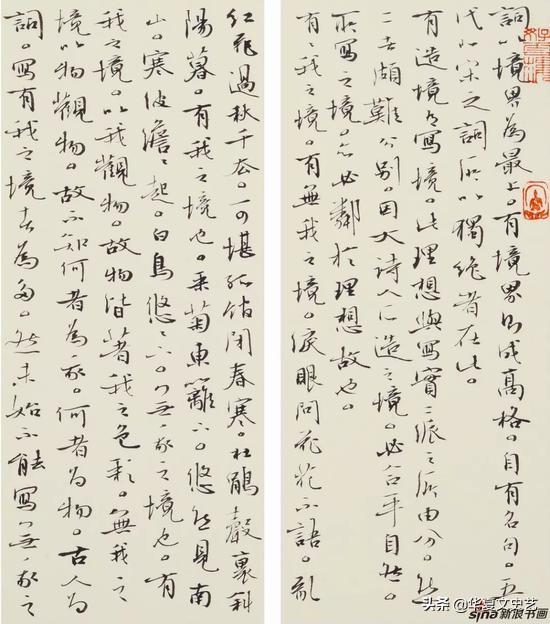 詞以境界為最上。有境界則成高格。自有名句。五
代北宋之詞所以獨絕者在此。
有造境有寫境。此理想與寫實二派之所由分。然
二者頗難分別。因大詩人所造之境。必合乎自然。
所寫之境。亦必鄰於理想故也。
有有我之境。有無我之境。淚眼問花花不語。亂
紅飛過秋千去。可堪孤館閉春寒。杜鵑聲裏斜
陽暮。有我之境也。采菊東籬下。悠然見南
山。寒波澹〻起。白鳥悠〻下。無我之境也。有
我之境。以我觀物。故物皆著我之色彩。無我之
境。以物觀物。故不知何者為我。何者為物。古人為
詞。寫有我之境者為多。然未始不能寫無我之
头条 @华夏文史艺
sina新浪书画